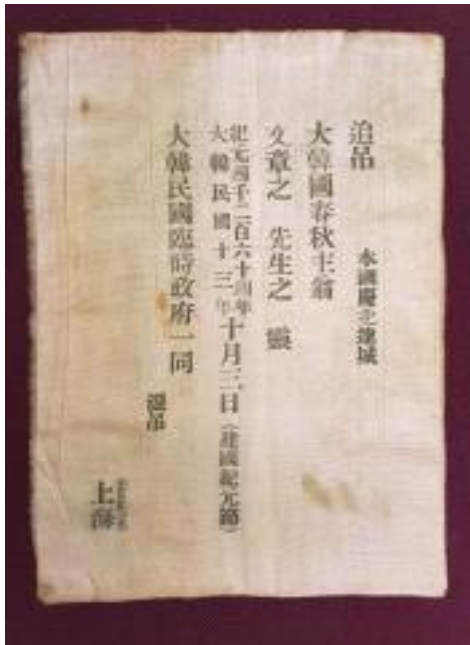 追吊
本國慶北達城
大韓國春秋主翁
文章之 先生之 靈
紀元四千二百六十四年
大韓民國十三年 十月三日(建國紀元節)
大韓民國臨時政府一同
謹吊
上海